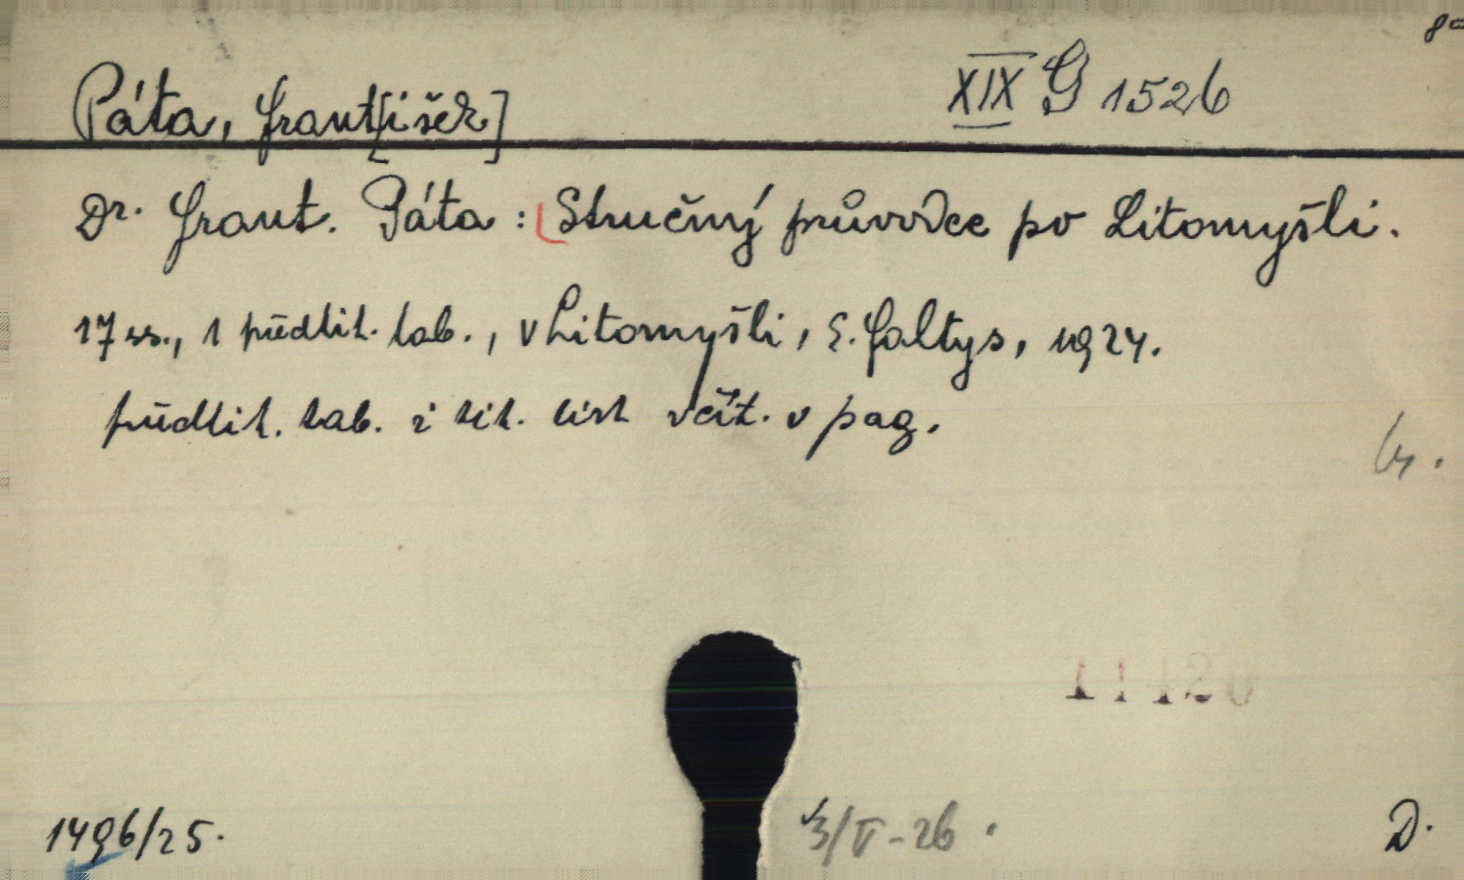 8°
Páta, Frant[išek]
XIX G 1526
Dr. Frant. Páta: Stručný průvodce po Litomyšli.
17 ss., 1 předtit. tab., v Litomyšli, E. Faltys, 1924.
předtit. tab. i tit. list včít. v pag.
1496/25.
3/V-26.
D.